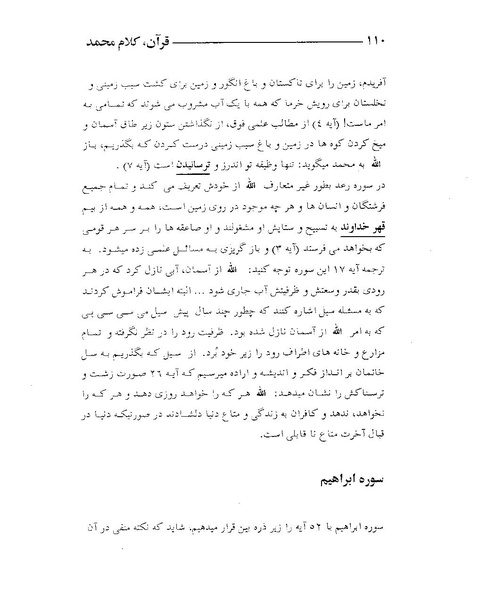 ۱۱۰ قرآن، کلام محمد
آفریدم، زمین را برای تاکستان و باغ انگور و زمین برای کشت سیب زمینی و
نخلستان برای رویش خرما که همه با یک آب مشروب می شوند که تمامی به
امر ماست! (آیه ٤) از مطالب علمی فوق، از نگذاشتن ستون زیر طاق آسمان و
میخ کردن کوه ها در زمین و باغ سیب زمینی درست کردن که بگذریم، باز
الله به محمد میگوید: تنها وظیفه تو اندرز و ترسانیدن است (آیه ۷) .
در سوره رعد بطور غیر متعارف الله از خودش تعریف می کند و تمام جمیع
فرشتگان و انسان ها و هر چه موجود در روی زمین است، همه و همه از بیم
قهر خداوند به تسبیح و ستایش او مشغولند و او صاعقه ها را بر سر هر قومی
که بخواهد می فرستد (آیه ۳) و باز گریزی به مسائل علمی زده میشود. به
ترجمه آیه ۱۷ این سوره توجه کنید: الله از آسمان، آبی نازل کرد که در هر
رودی بقدر وسعتش و ظرفیتش آب جاری شود ... البته ایشان فراموش کردند
که به مسئله سیل اشاره کنند که چطور چند سال پیش سیل می سی سی پی
که به امر الله از آسمان نازل شده بود. ظرفیت رود را در نظر نگرفته و تمام
مزارع و خانه های اطراف رود را زیر خود بُرد. از سیل که بگذریم به سل
خانمان بر انداز فکر و اندیشه و اراده میرسیم که آیه ۲٦ صورت زشت و
ترسناکش را نشان میدهد: الله هر که را خواهد روزی دهد و هر که را
نخواهد، ندهد و کافران به زندگی و متاع دنیا دلشادند در صورتیکه دنیا در
قبال آخرت متاع نا قابلی است.
سوره ابراهیم
سوره ابراهیم با ۵۲ آیه را زیر ذره بین قرار میدهیم، شاید که نکته منفی در آن